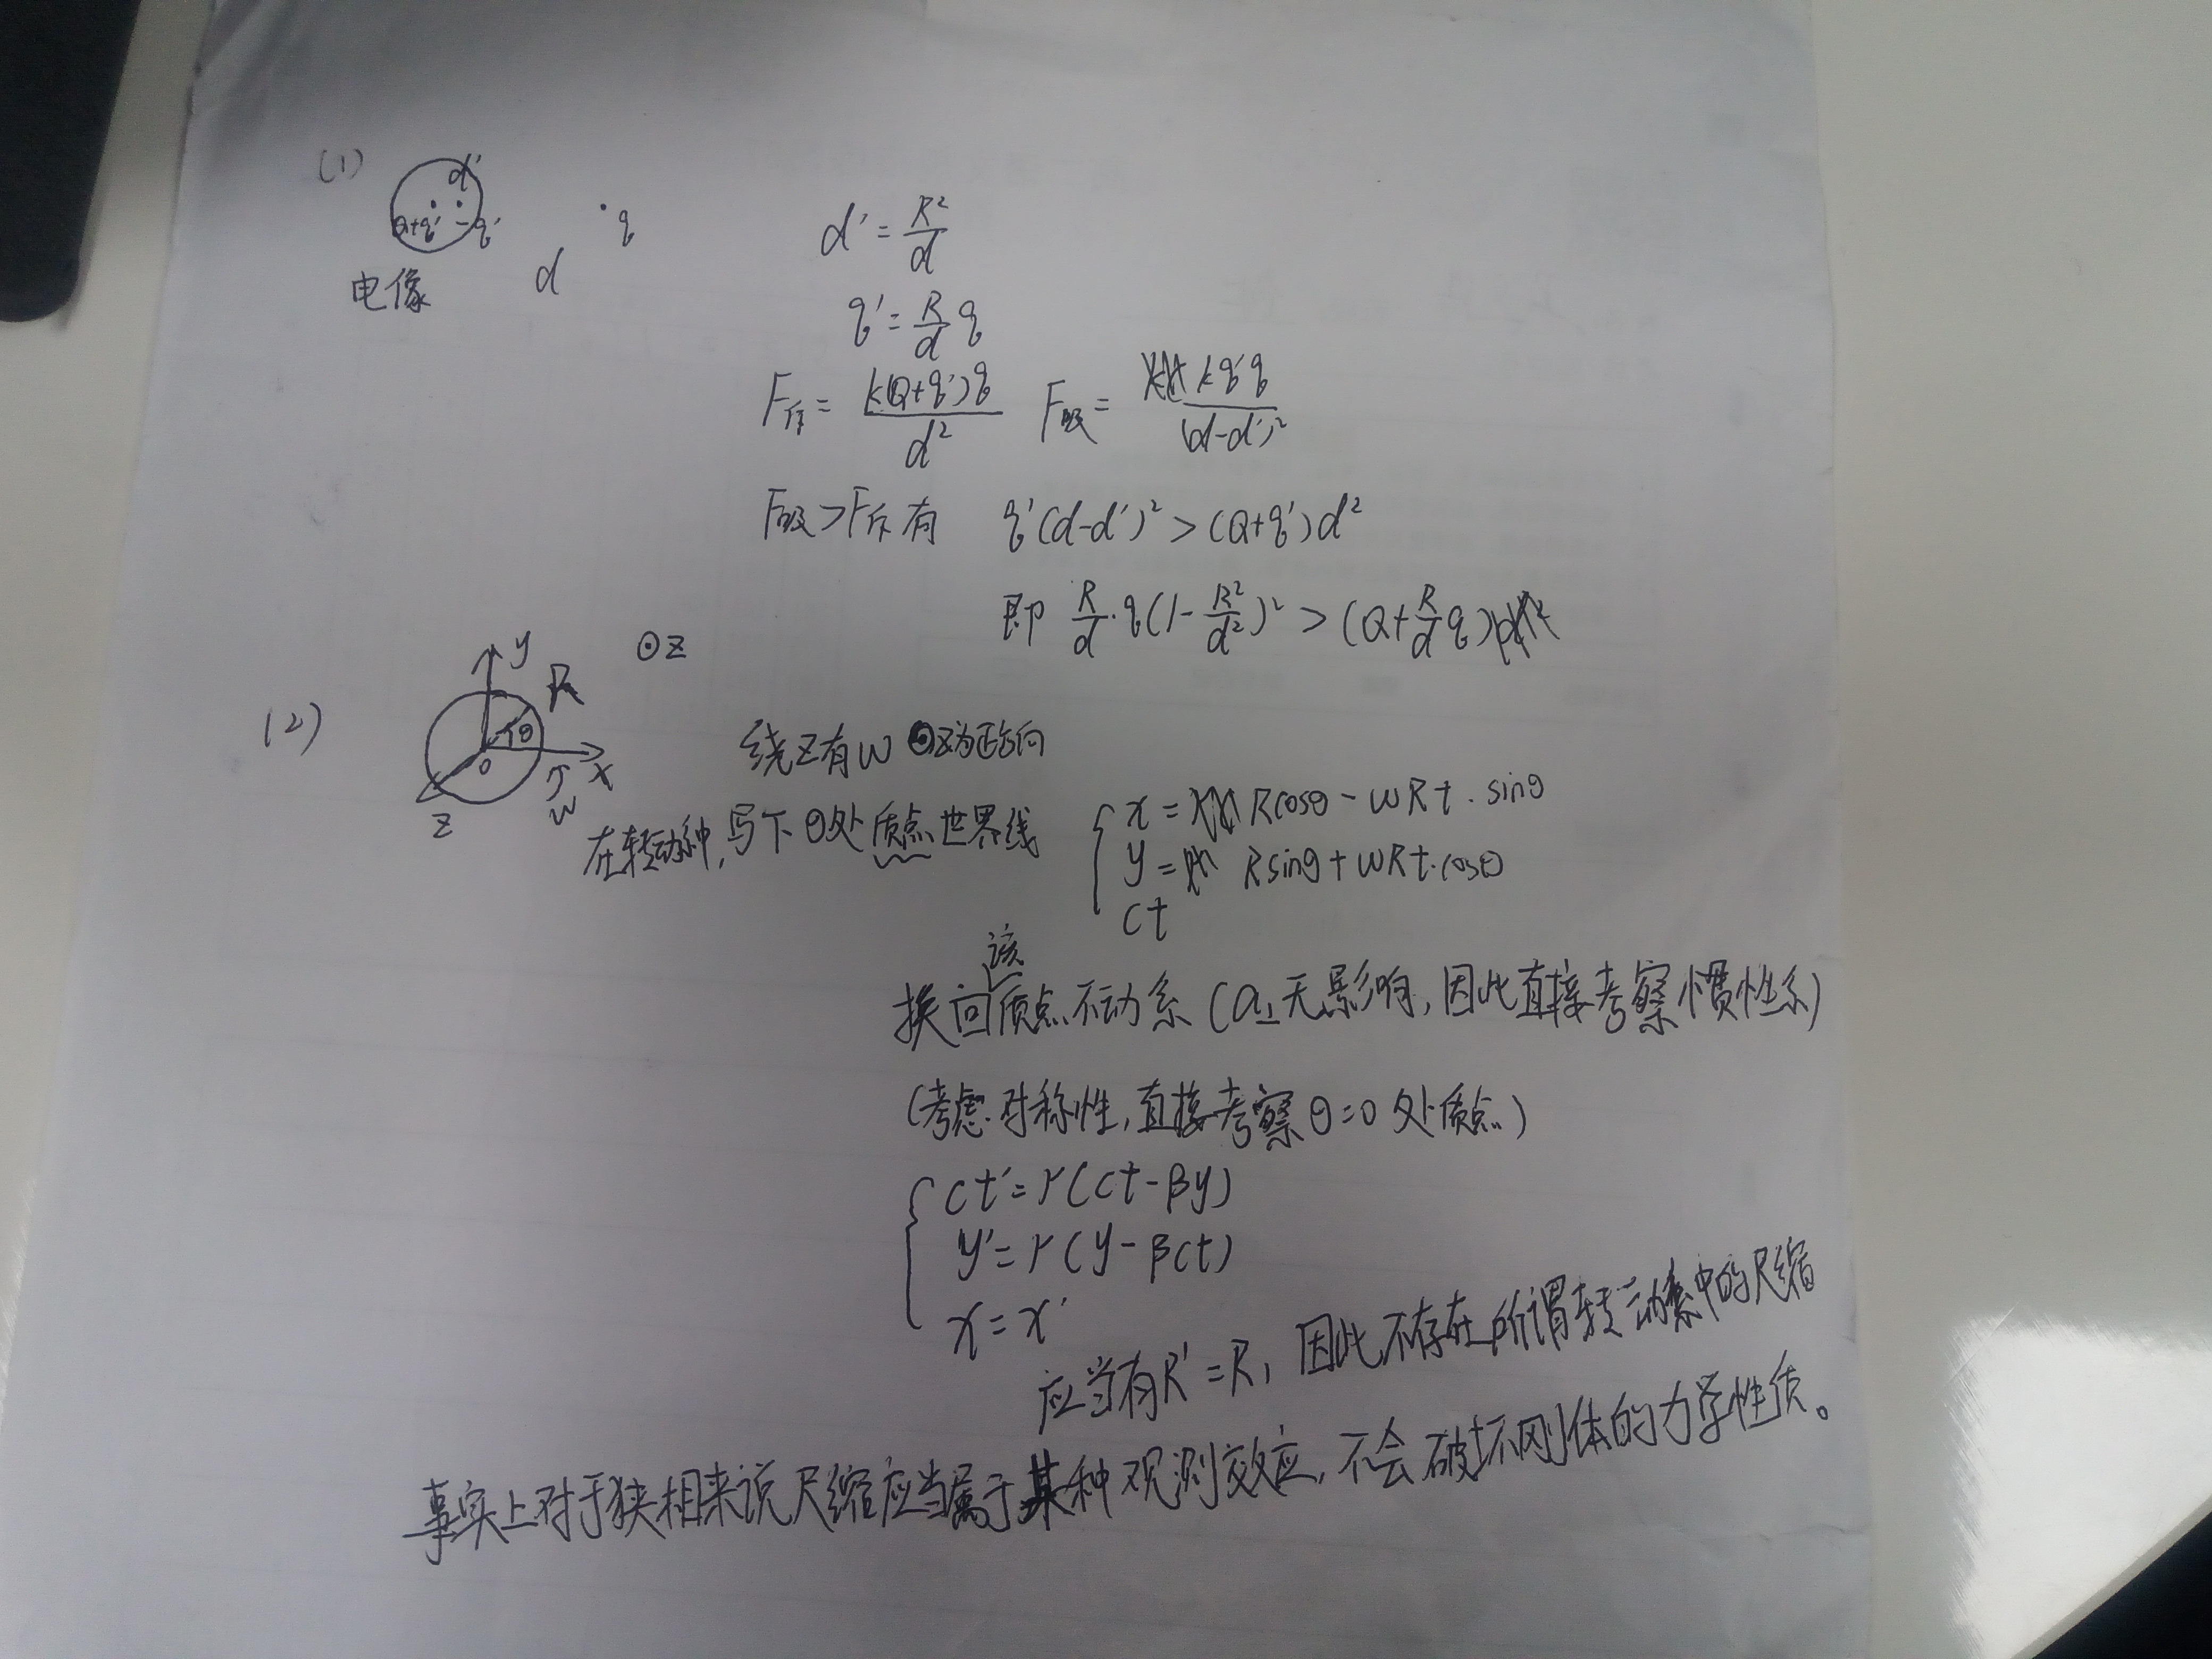 (1)
d'
Q+q' -q'
q
d
电像
d' = R²/d
q' = R/d q
F斥 = k(Q+q')q / d² F吸 = kq'q / (d-d')²
F吸>F斥 有 q'(d-d')² > (Q+q')d²
即 R/d·q(1-R²/d²)² > (Q+R/d q)
(2)
y ⊙z
R
θ
O x
z w
绕z有w ⊙z为正方向
在转动种,写下θ处质点世界线
x = Rcosθ - wRt·sinθ
y = Rsinθ + wRt·cosθ
ct
换回该质点不动系(a⊥无影响,因此直接考察惯性系)
(考虑对称性,直接考察θ=0处质点)
ct' = γ(ct-βy)
y' = γ(y-βct)
x = x'
应当有R'=R, 因此不存在所谓转动系中的尺缩
事实上对于狭相来说尺缩应当属于某种观测效应,不会破坏刚体的力学性质。